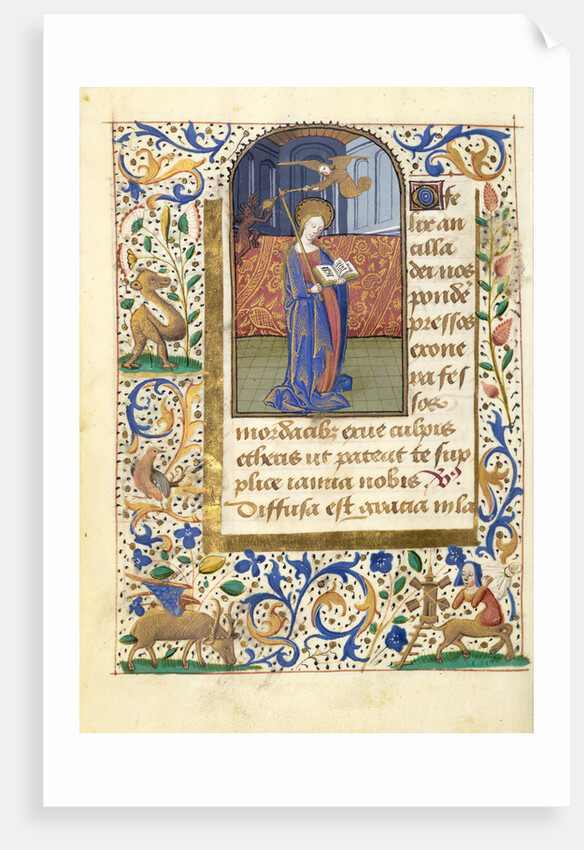 O fe
lix an
cilla
dei nos
pondē
pressos
exone
ra fes
sos
mordacibz erue culpis
etheris ut pateat te sup
plice ianua nobis V
Diffusa est gracia in la